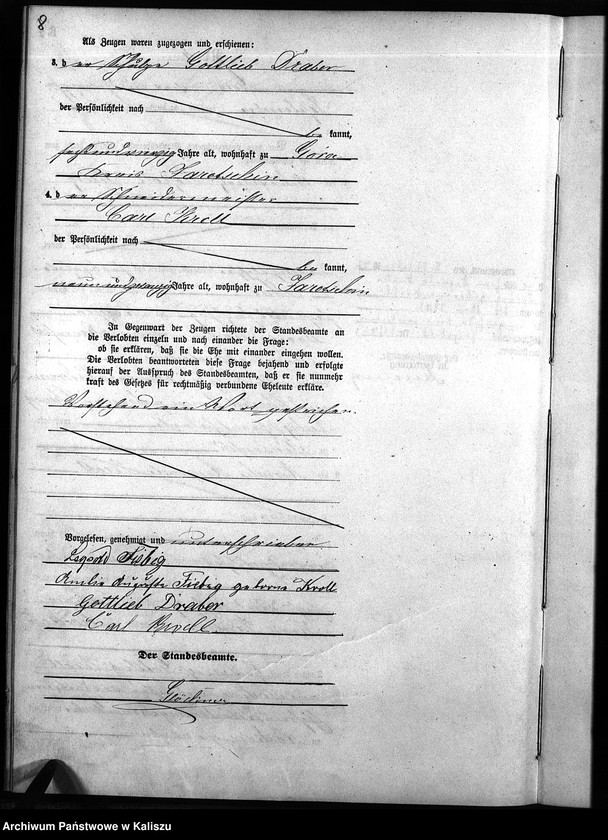 8
Als Zeugen waren zugezogen und erschienen:
3. der Schulze Gottlieb Draber
der Persönlichkeit nach
be kannt,
Jahre alt, wohnhaft zu Gora
Kreis Jarotschin
4. der Schneidermeister
Carl Kroll
der Persönlichkeit nach
be kannt,
neunundzwanzig Jahre alt, wohnhaft zu Jarotschin
In Gegenwart der Zeugen richtete der Standesbeamte an
die Verlobten einzeln und nach einander die Frage:
ob sie erklären, daß sie die Ehe mit einander eingehen wollen.
Die Verlobten beantworteten diese Frage bejahend und erfolgte
hierauf der Ausspruch des Standesbeamten, daß er sie nunmehr
kraft des Gesetzes für rechtmäßig verbundene Eheleute erkläre.
Vorstehend ein Wort gestrichen.
Vorgelesen, genehmigt und unterschrieben
Leopold Fiebig
Emilie Auguste Fiebig geborne Kroll
Gottlieb Draber
Carl Kroll
Der Standesbeamte.
Archiwum Państwowe w Kaliszu